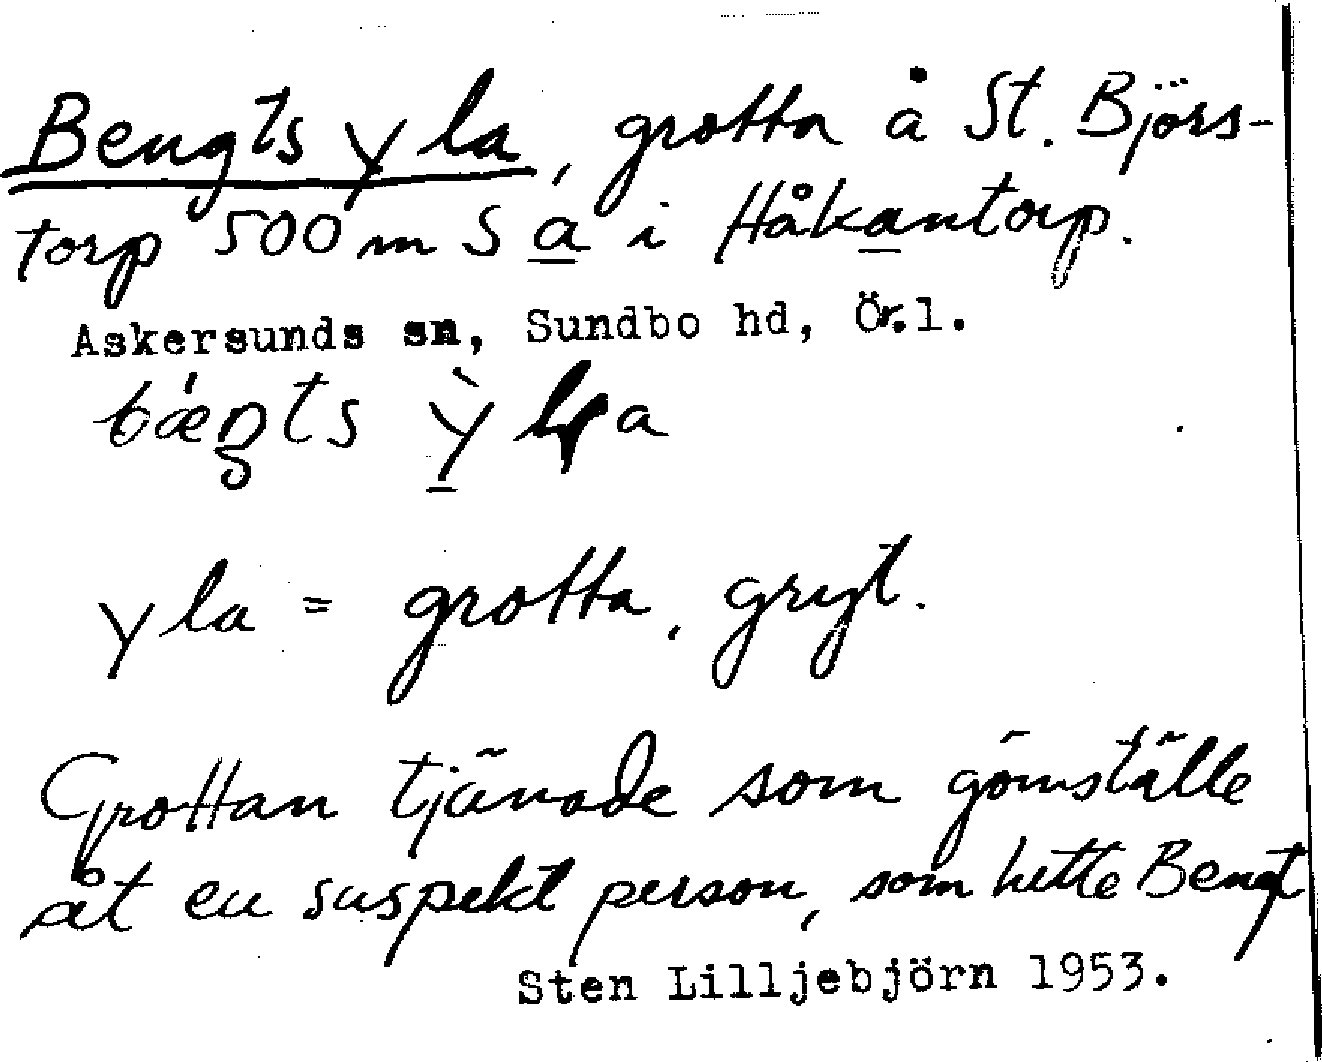 Bengts yla, grotta å St. Björs-
torp 500 m S a i Håkantorp.
Askersunds sn, Sundbo hd, Ör.l.
yla = grotta, gryt.
Grottan tjänade som gömställe
åt en suspekt person, som hette Bengt
Sten Lilljebjörn 1953.